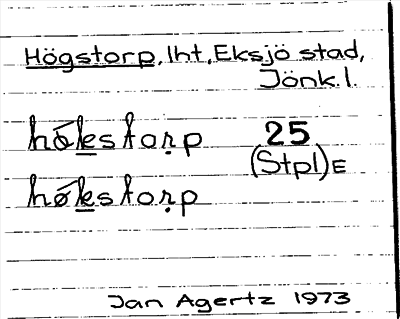 Högstorp, lht, Eksjö stad,
Jönk. l.
hǿkestorp 25
(Stpl) E
høkestorp
Jan Agertz 1973